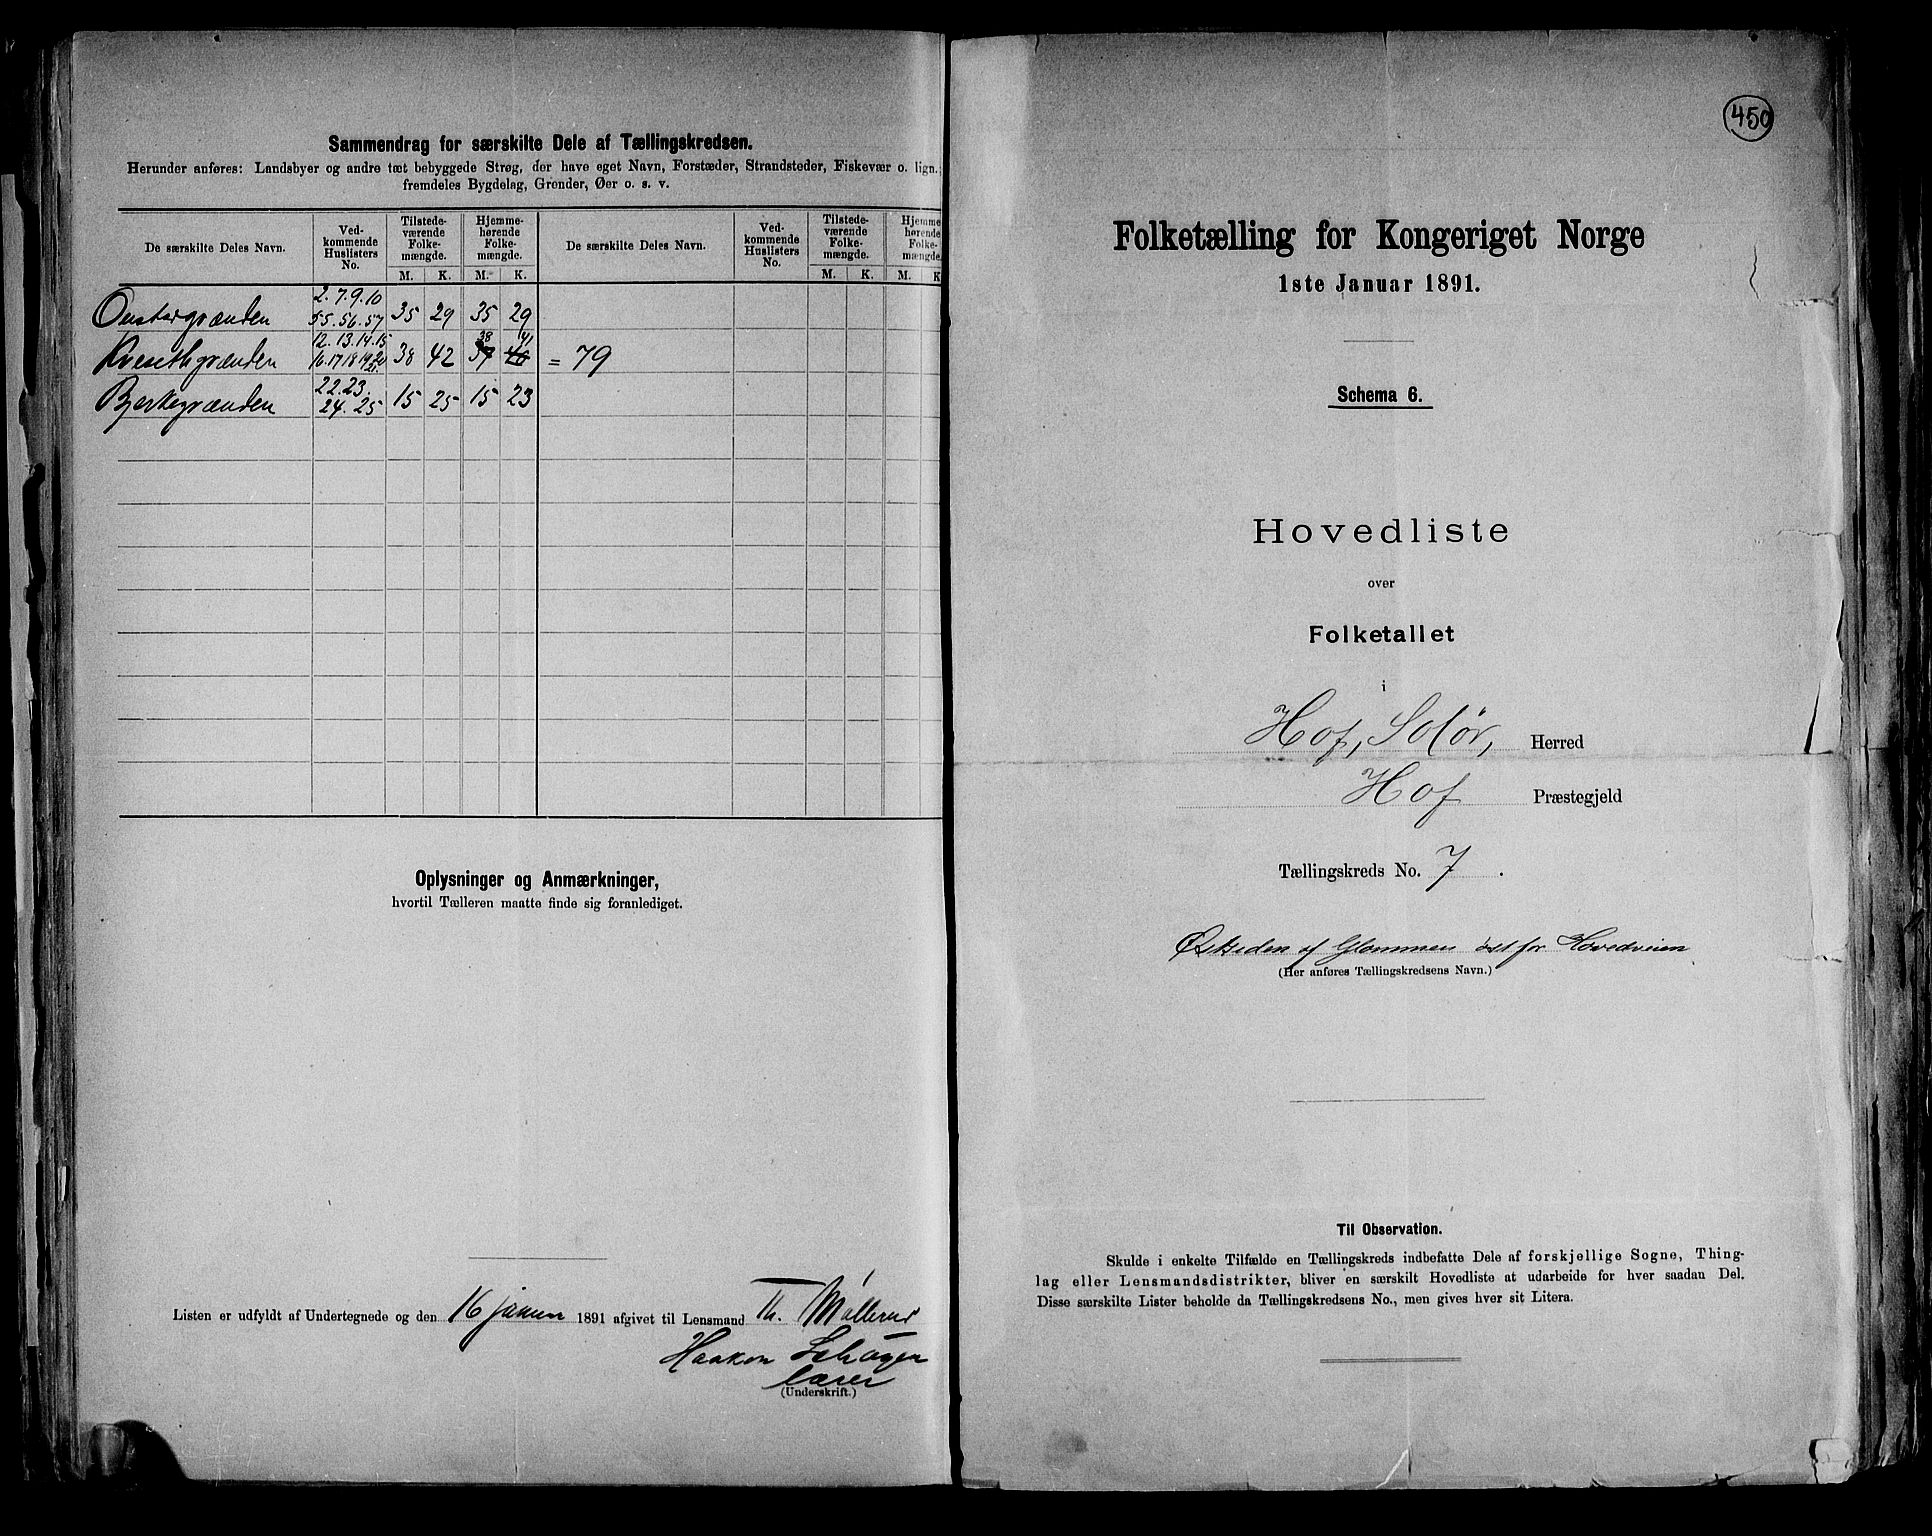 Sammendrag for særskilte Dele af Tællingskredsen.
Herunder anføres: Landsbyer og andre tæt bebyggede Strøg, der have eget Navn, Forstæder, Strandsteder, Fiskevær o. lign.;
fremdeles Bygdelag, Grender, Øer o. s. v.
De særskilte Deles Navn. Ved-kommende Huslisters No. Tilstede-værende Folke-mængde. Hjemme-hørende Folke-mængde. De særskilte Deles Navn. Ved-kommende Huslisters No. Tilstede-værende Folke-mængde. Hjemme-hørende Folke-mængde.
M. K. M. K. M. K. M. K
2. 7. 9. 10
55. 56. 57 35 29 35 29
12. 13. 14. 15 38 41
Kvesethgrænden 16 17 18 19 20 21. 38 42 37 40 = 79
22. 23.
Bjerkegrænden 24. 25 15 25 15 23
Oplysninger og Anmærkninger,
hvortil Tælleren maatte finde sig foranlediget.
Listen er udfyldt af Undertegnede og den 16 januar 1891 afgivet til Lensmand Th. Møllerud
Haakon
lærer
(Underskrift.)
450
Folketælling for Kongeriget Norge
1ste Januar 1891.
Schema 6.
Hovedliste
over
Folketallet
i
Hof, Solør, Herred
Hof Præstegjeld
Tællingskreds No. 7.
Østsiden af Glommen øst for Hovedveien
(Her anføres Tællingskredsens Navn.)
Til Observation.
Skulde i enkelte Tilfælde en Tællingskreds indbefatte Dele af forskjellige Sogne, Thing-
lag eller Lensmandsdistrikter, bliver en særskilt Hovedliste at udarbeide for hver saadan Del.
Disse særskilte Lister beholde da Tællingskredsens No., men gives hver sit Litera.